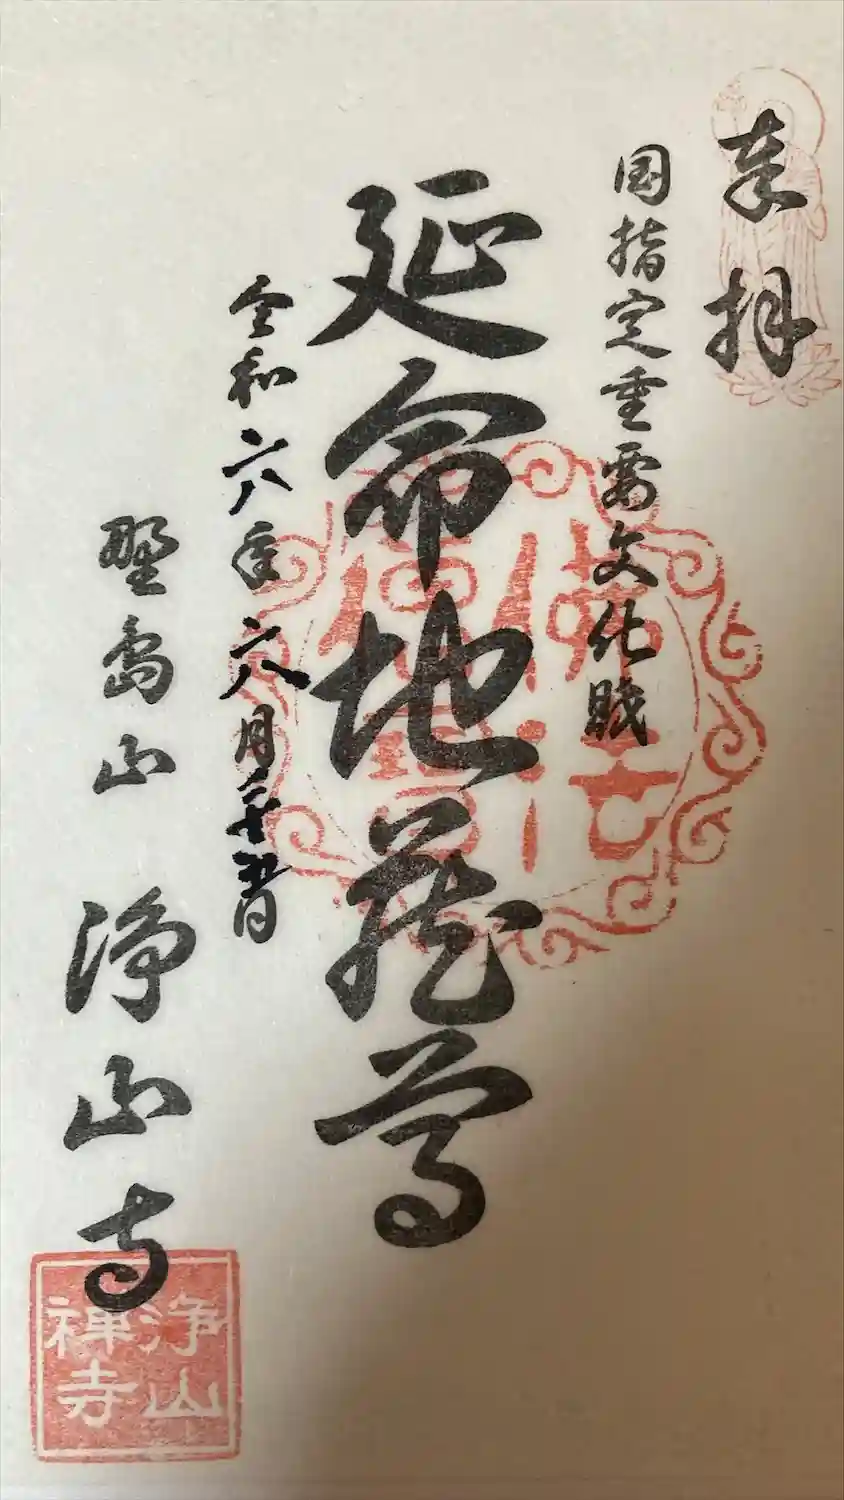 奉拝
国指定重要文化財
延命地蔵尊
令和六年六月二十五日
野島山 浄山寺
浄山
禅寺